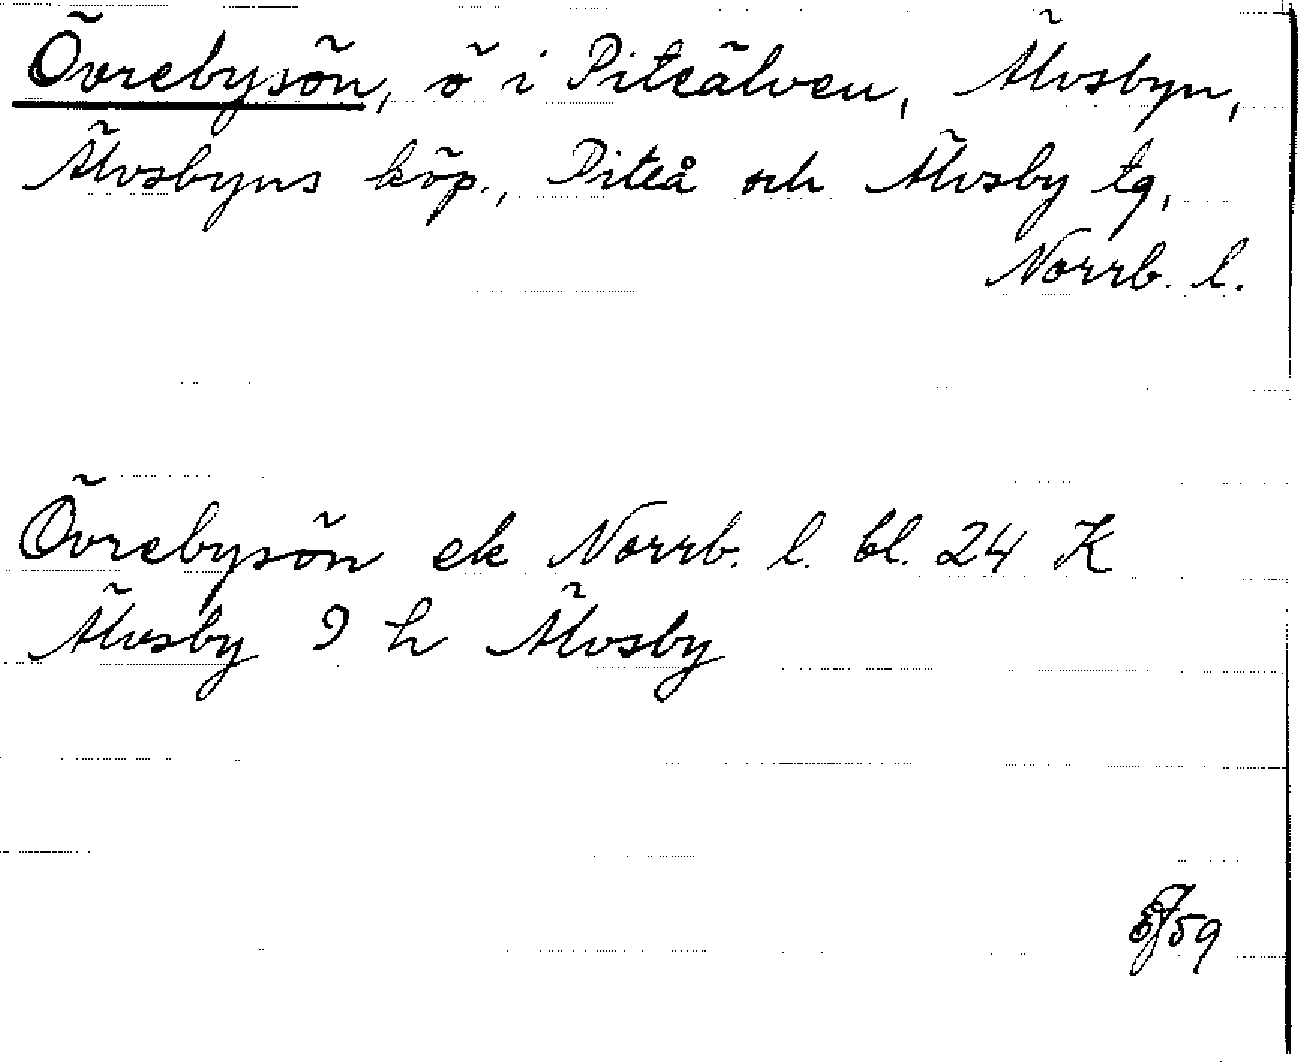 Övrebysön, ö i Piteälven, Älvsbyn,
Älvsbyns köp., Piteå och Älvsby tg,
Norrb. l.
Övrebysön ek Norrb. l. bl. 24 K
Älvsby 9 h Älvsby
/59